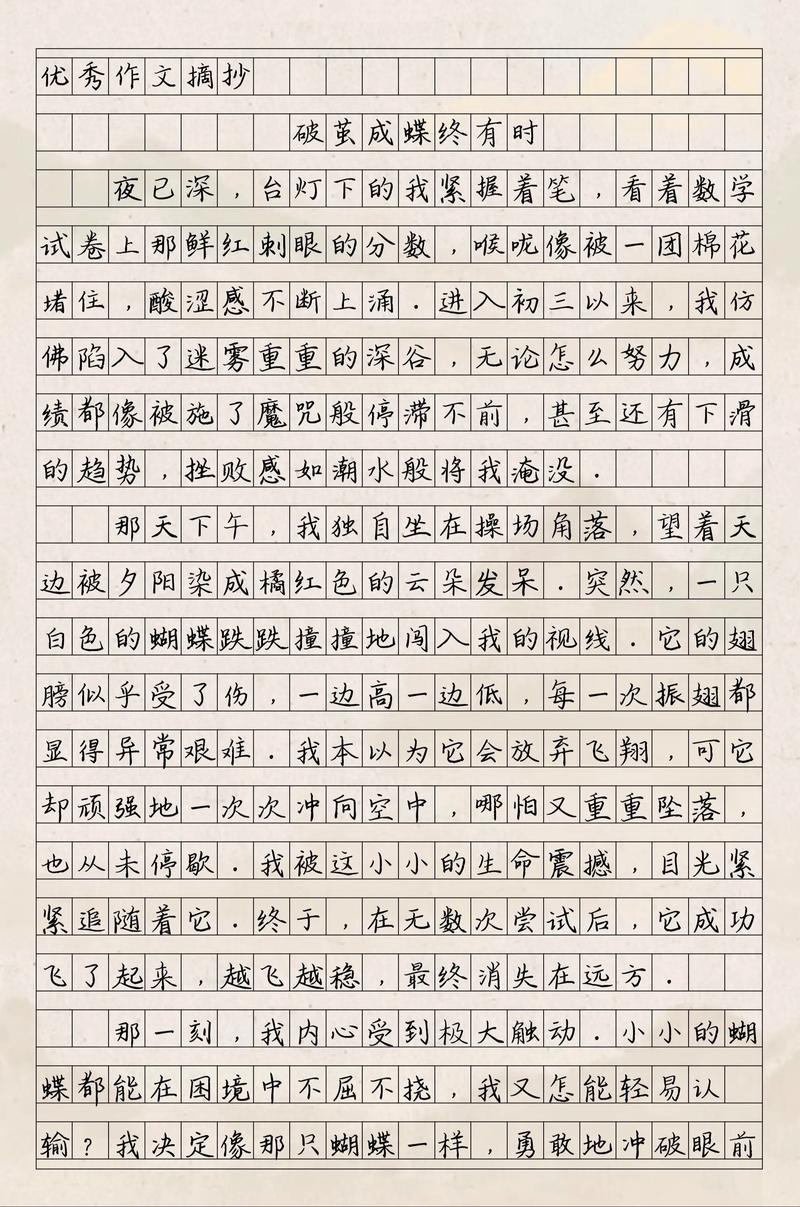 优秀作文摘抄
破茧成蝶终有时
夜已深，台灯下的我紧握着笔，看着数学
试卷上那鲜红刺眼的分数，喉咙像被一团棉花
堵住，酸涩感不断上涌．进入初三以来，我仿
佛陷入了迷雾重重的深谷，无论怎么努力，成
绩都像被施了魔咒般停滞不前，甚至还有下滑
的趋势，挫败感如潮水般将我淹没．
那天下午，我独自坐在操场角落，望着天
边被夕阳染成橘红色的云朵发呆．突然，一只
白色的蝴蝶跌跌撞撞地闯入我的视线．它的翅
膀似乎受了伤，一边高一边低，每一次振翅都
显得异常艰难．我本以为它会放弃飞翔，可它
却顽强地一次次冲向空中，哪怕又重重坠落，
也从未停歇．我被这小小的生命震撼，目光紧
紧追随着它．终于，在无数次尝试后，它成功
飞了起来，越飞越稳，最终消失在远方．
那一刻，我内心受到极大触动．小小的蝴
蝶都能在困境中不屈不挠，我又怎能轻易认
输？我决定像那只蝴蝶一样，勇敢地冲破眼前